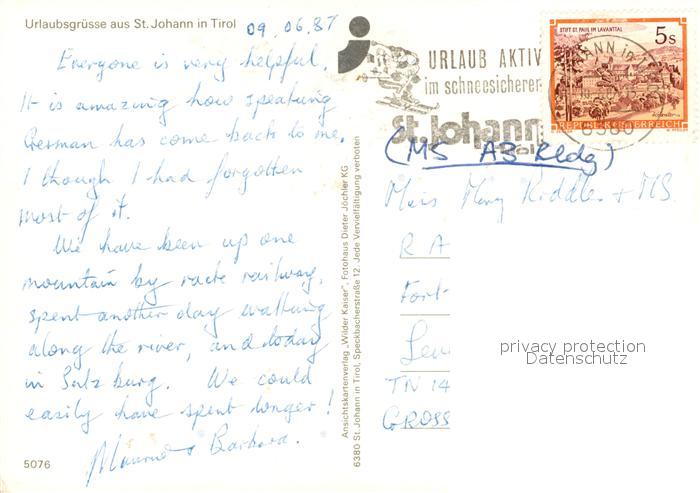 Urlaubsgrüsse aus St. Johann in Tirol
09.06.87
Everyone is very helpful.
It is amazing how speaking
German has come back to me.
I though I had forgotten
most of it.
We have been up one
mountain by rack railway,
spent another day walking
along the river, and today
in Salzburg. We could
easily have spent longer!
& Barbara.
5076
Ansichtskartenverlag „Wilder Kaiser", Fotohaus Dieter Jöchler KG
6380 St. Johann in Tirol, Speckbacherstraße 12. Jede Vervielfältigung verboten
URLAUB AKTIV
im schneesicheren
St. Johann
STIFT ST. PAUL IM LAVANTTAL
5s
REPUBLIK ÖSTERREICH
(MS AB Bldg)
Mary Riddle + MS.
R A
Fort-
TN 14
GROSS
privacy protection
Datenschutz